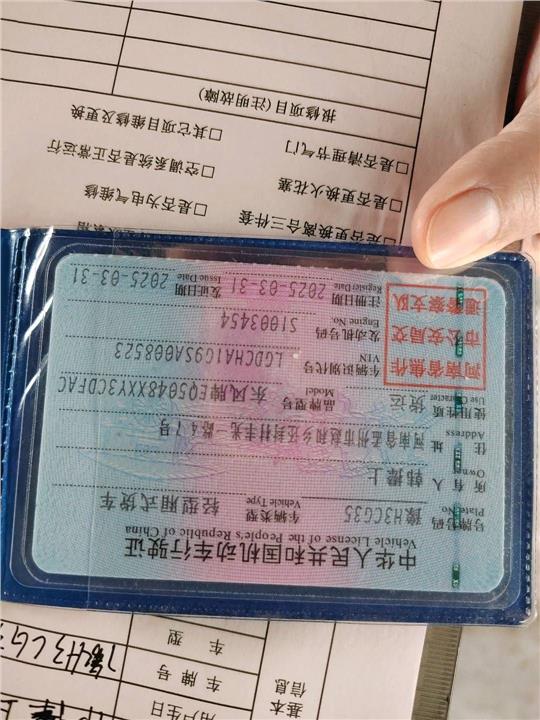 基本
信息
用户生日
车牌号
车型
中华人民共和国机动车行驶证
Vehicle License of the People's Republic of China
号牌号码 豫H3CG35 车辆类型 轻型厢式货车
Plate No. Vehicle Type
所有人
Owner
住址 河南省孟州市
Address
使用性质 货运 品牌型号 东风牌EQ5048XXY3CDFAC
Use Character Model
车辆识别代号 LGDCHA1G9SA008523
VIN
发动机号码 S1003454
Engine No.
注册日期 2025-03-31 发证日期 2025-03-31
Register Date Issue Date
河南省焦作
市公安局交
通警察支队
□是否更换离合三件套
□是否更换火花塞 □是否为电气维修
□是否清理节气门 □空调系统是否正常运行
□其它项目维修及更换
报修项目(注明故障)